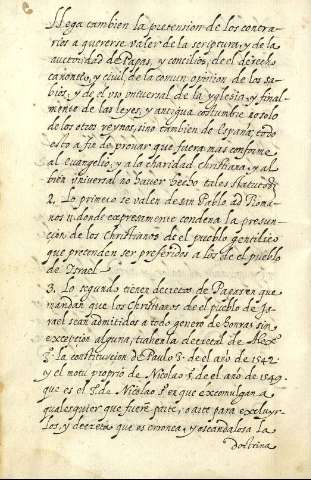 Llega tambien la pretension de los contra-
rios a quererse valer de la scriptura, y de la
auctoridad de Papas, y concilios, de el derecho
canonico, y civil, de la comun opinion de los sa-
bios, y de el uso universal de la yglesia, y final-
mente de las leyes, y antigua costumbre no solo
de los otros reynos, sino tambien de España; todo
esto a fin de provar que fuera mas conforme
al Evangelio, y a la charidad christiana, y al
bien universal no haver hecho tales statutos.
2. Lo primero se valen de san Pablo ad Roma-
nos donde expresamente condena la presun-
cion de los Christianos de el pueblo gentilico
que pretenden ser preferidos a los de el pueblo
de Israel
3. Lo segundo tienen decretos de Papas en que
mandan que los Christianos de el pueblo de Is-
rael sean admitidos a todo genero de honras sin
exception alguna; trahen la decretal de Alex
3º. la constitucion de Paulo 3º. de el año de 1542
y el motu proprio de Nicolao 5. de el año de 1549.
que es el de Nicolao 5º en que excomulgan a
qualesquier que fuere parte, o arte para excluyr-
los, y decreta que es erronea, y escandalosa la
doctrina